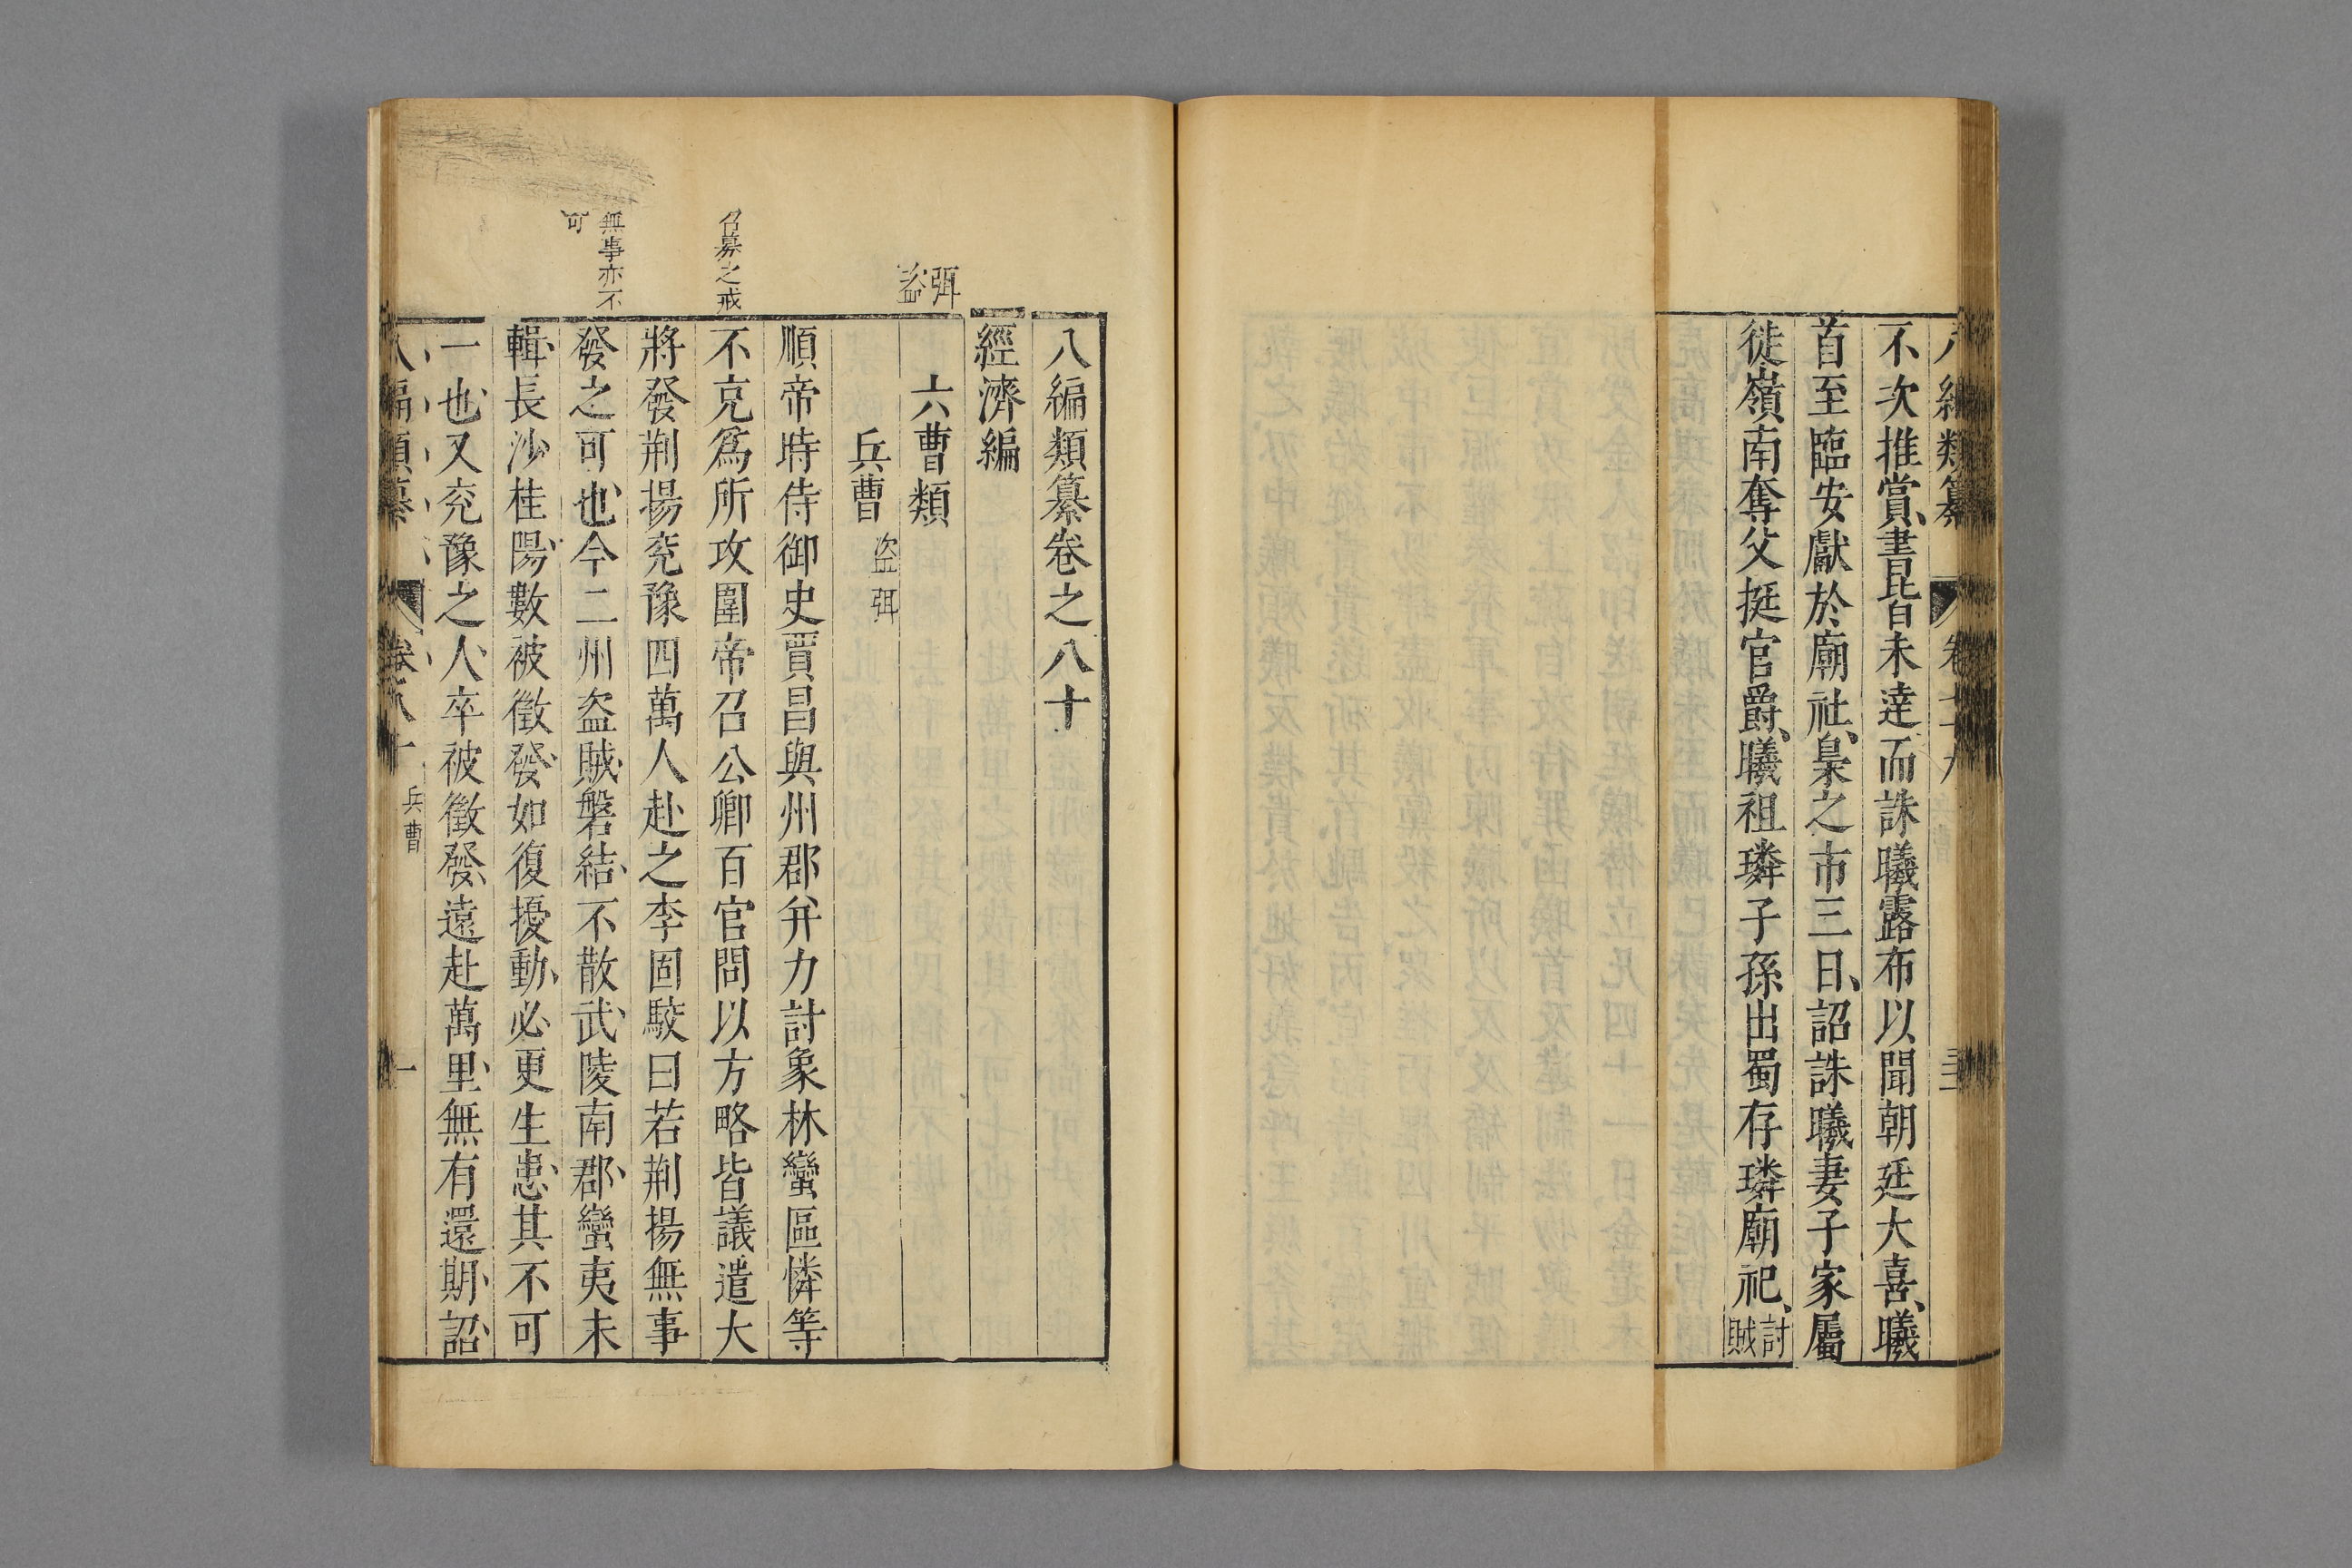 不次推賞書皆未達而誅曦露布以聞朝廷大喜曦
首至臨安獻於廟社梟之市三日詔誅曦妻子家屬
徙嶺南奪父挺官爵曦祖璘子孫出蜀存璘廟祀討賊
八編類纂卷之八十
經濟編
弭盗
六曹類
兵曹
弭盗
順帝時侍御史賈昌與州郡并力討象林蠻區憐等
召募之戒
不克為所攻圍帝召公卿百官問以方略皆議遣大
將發荆揚兖豫四萬人赴之李固駮曰若荆揚無事
無事亦不
可
發之可也今二州盗賊磐結不散武陵南郡蠻夷未
輯長沙桂陽數被徵發如復擾動必更生患其不可
一也又兖豫之人卒被徵發遠赴萬里無有還期詔
八編類纂
卷八十
兵曹
一